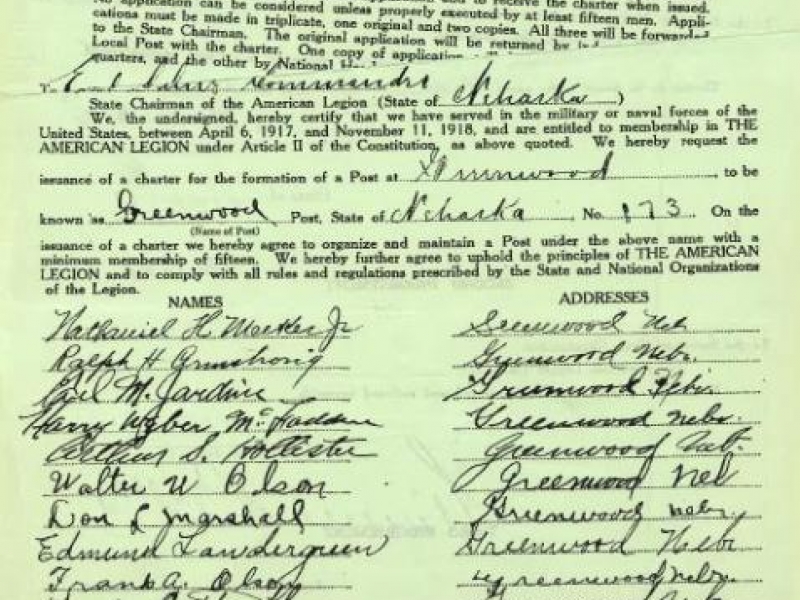 No application can be considered unless properly executed by at least fifteen men. Appli-
cations must be made in triplicate, one original and two copies. All three will be forwarded
to the State Chairman. The original application will be returned by
Local Post with the charter. One copy of application
quarters, and the other by National
State Chairman of the American Legion (State of Nehaska )
We, the undersigned, hereby certify that we have served in the military or naval forces of the
United States, between April 6, 1917, and November 11, 1918, and are entitled to membership in THE
AMERICAN LEGION under Article II of the Constitution, as above quoted. We hereby request the
issuance of a charter for the formation of a Post at Greenwood to be
known as Greenwood Post, State of Nehaska No. 173 On the
(Name of Post)
issuance of a charter we hereby agree to organize and maintain a Post under the above name with a
minimum membership of fifteen. We hereby further agree to uphold the principles of THE AMERICAN
LEGION and to comply with all rules and regulations prescribed by the State and National Organizations
of the Legion.
NAMES ADDRESSES
Nathaniel H Meeker Jr Greenwood Neb
Ralph H Armstrong Greenwood Nebr.
Carl M. Jardine Greenwood Nebr.
Harry Weber McFadden Greenwood nebr.
Arthur S. Hollester Greenwood Neb.
Walter W Olson Greenwood Neb
Don L Marshall Greenwood nebr.
Edmund Landergreen Greenwood Nebr
Frank A. Olson Greenwood Nebr.